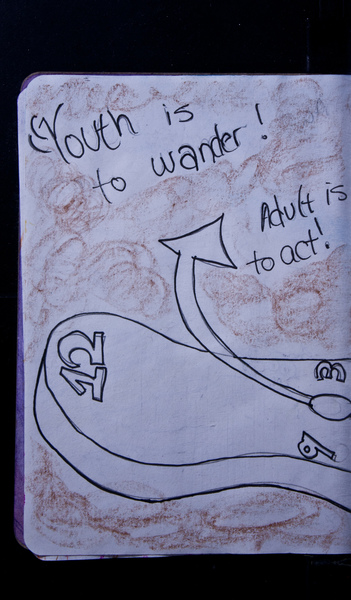 Youth is
to wander!
Adult is
to act!
12
3
9